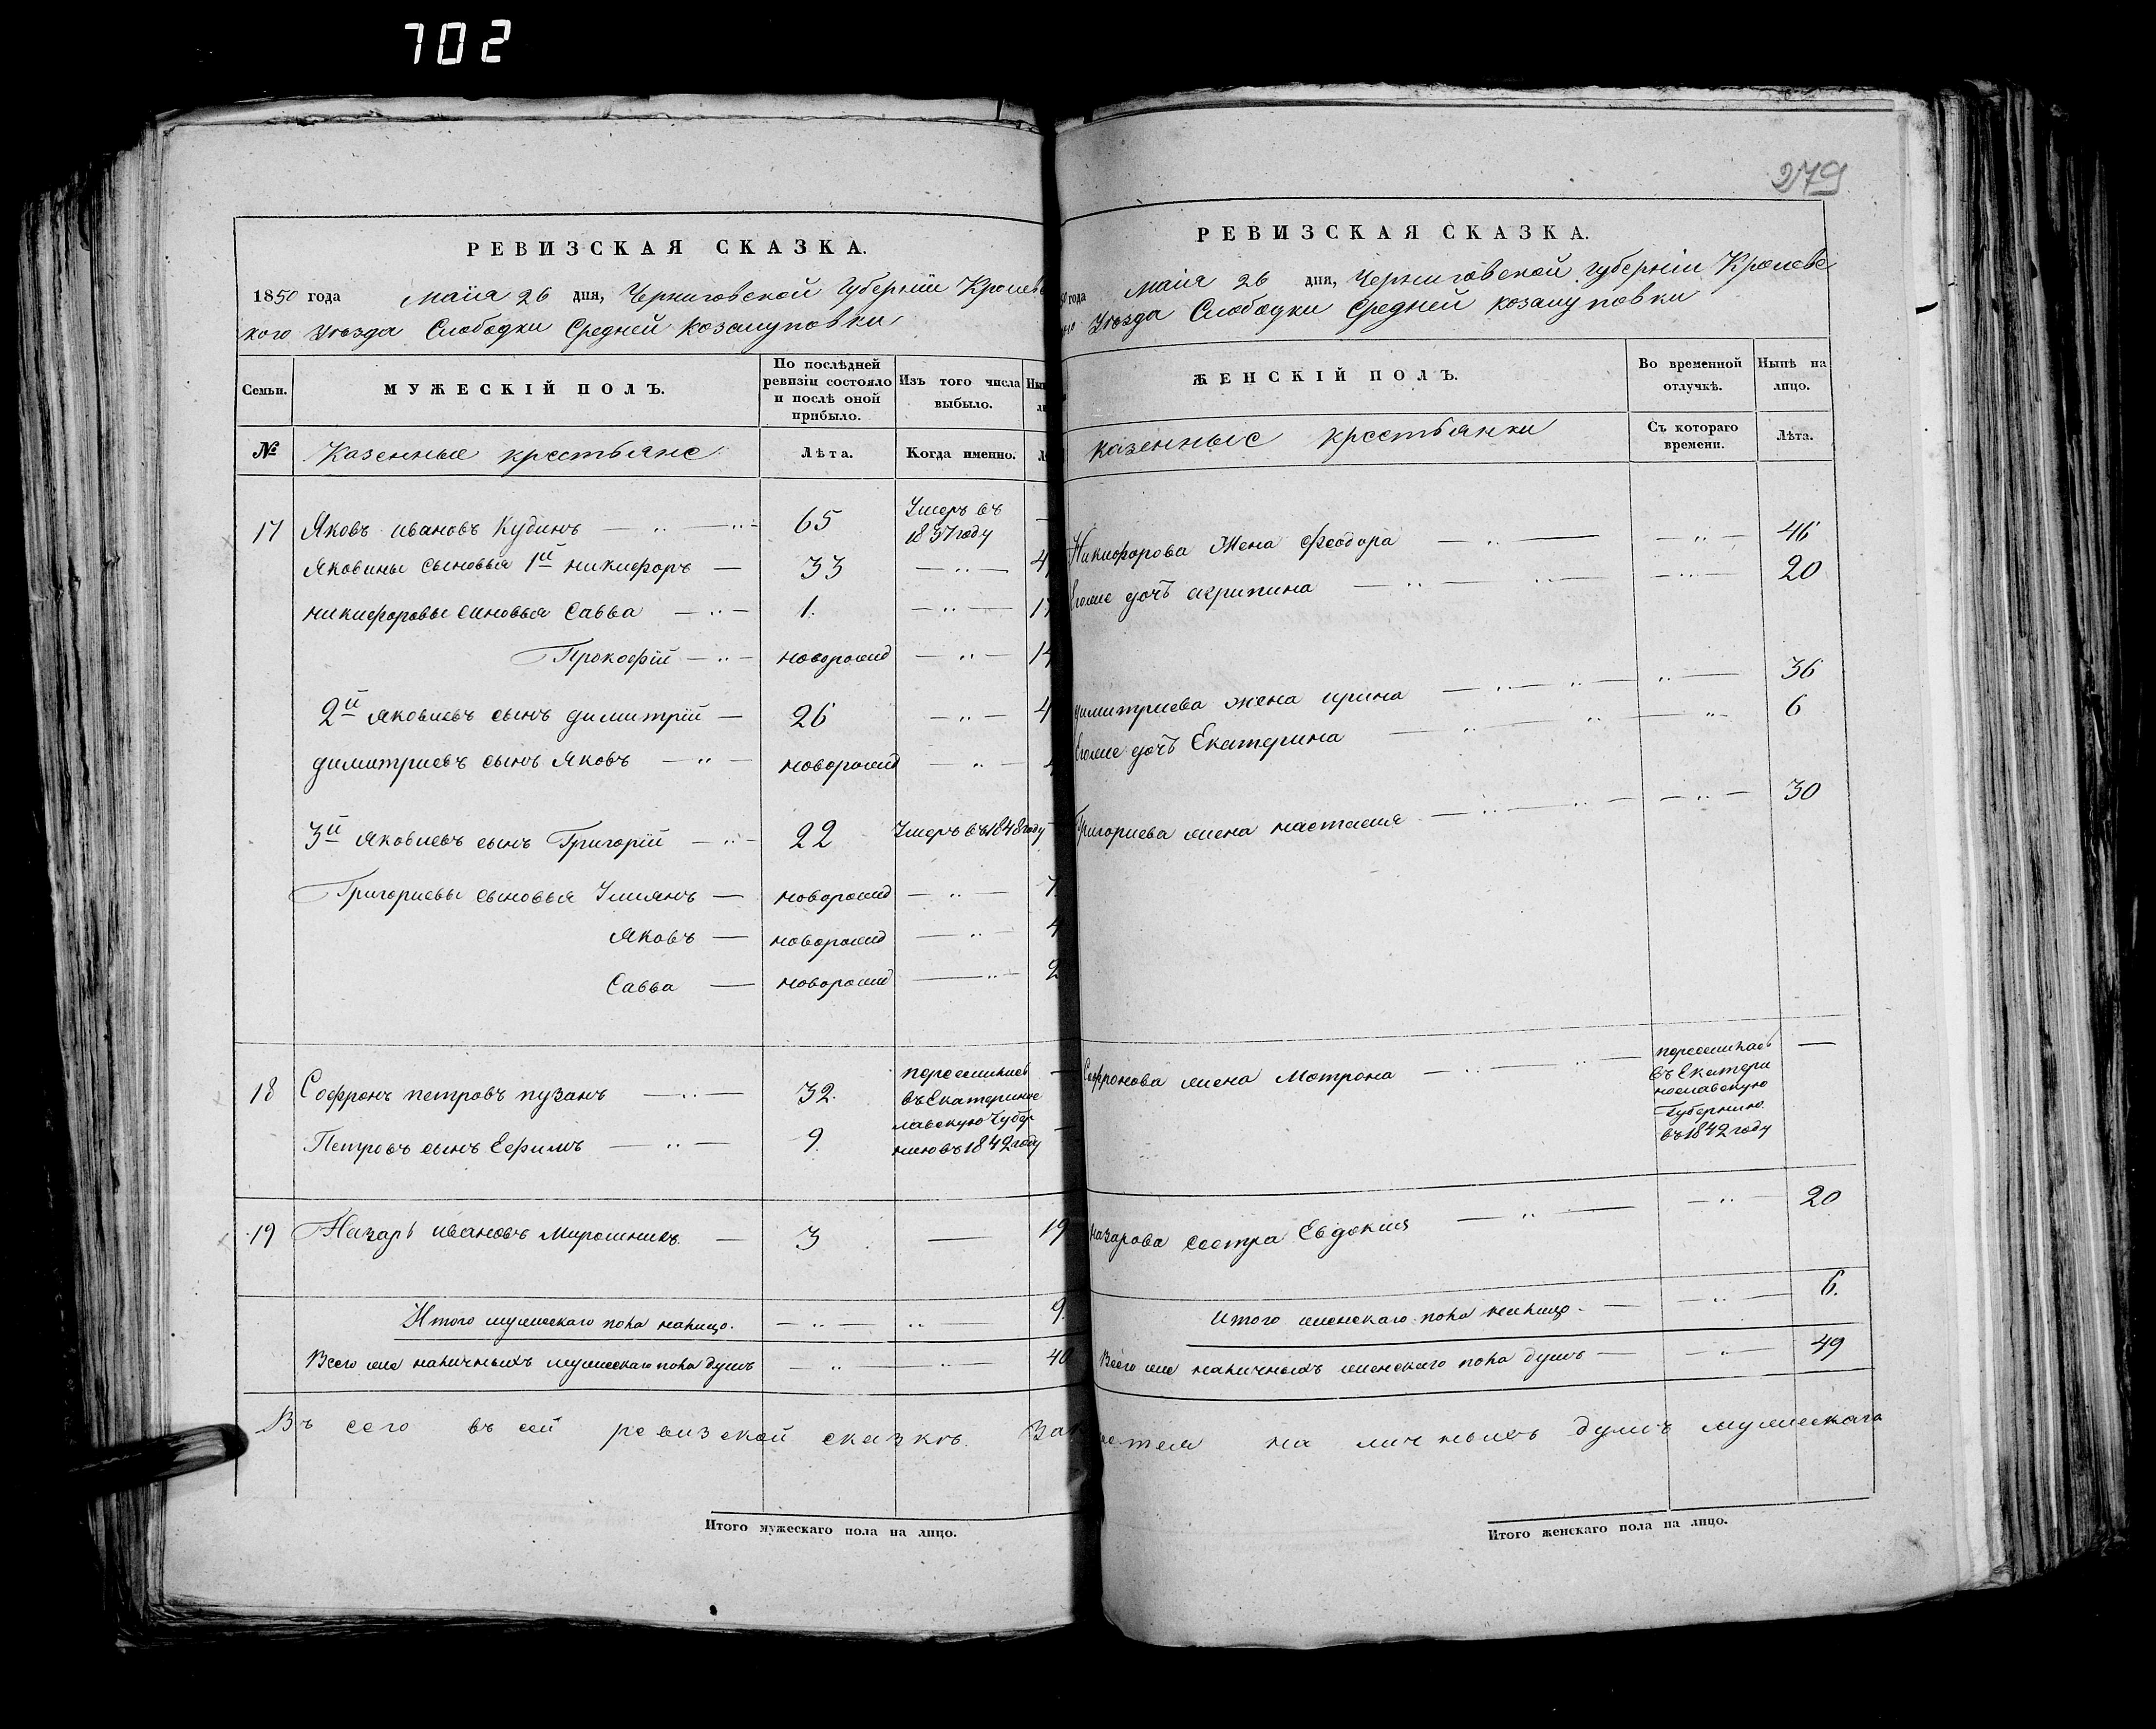 702
279
РЕВИЗСКАЯ СКАЗКА.
1850 года Маія 26 дня, Черниговской Губерніи Кролевец
кого Уезда Слободки Средней Козацуповки
Семьи.
МУЖЕСКІЙ ПОЛЪ.
По послѣдней ревизіи состояло и послѣ оной прибыло.
Изъ того числа выбыло.
№ Казенные крестьяне Лѣта. Когда именно.
17 Яковъ Ивановъ Кудинъ 65 Умеръ въ 1837 году
Яковины сыновья 1й никифоръ 33
никифоровы синовья Савва 1.
Прокофій новорожд
2й яковлевъ сынъ димитрій 26
димитриевъ сынъ Яковъ новорожд
3й яковлевъ сынъ Григорій 22 Умеръ въ 1848 году
Григориевы сыновья Умиянъ новорожд 7.
Яковъ новорожд 4
Савва новорожд 2
18 Софронъ петровъ пузанъ 32.
переселился
въ Екатеринос
лавскую Губер
нию въ 1842 году
Петровъ сынъ Ефимъ 9.
19 Назаръ ивановъ Мирошникъ. 3 19
Итого мужескаго пола налицо. 9
Всего же наличныхъ мужескаго пола душъ 40
Въ сего въ сей ревизской сказкѣ.
Итого мужескаго пола на лицо.
РЕВИЗСКАЯ СКАЗКА.
года Маія 26 дня, Черниговской губерніи Кролеве
Уезда Слободки Средней козацуповки
ЖЕНСКІЙ ПОЛЪ.
Во временной отлучкѣ.
Нынѣ на лицо.
казенные крестьянки
Съ котораго времени.
Лѣта.
Никифорова Жена Феодора 46
Егоже дочь агрипина 20
димитриева жена ирина 36
Егоже дочь Екатерина 6
Григориева жена настасия 30
Софронова жена Мотрона
переселилась
въ Екатери
нославскую
Губернию
въ 1842 году
назарова сестра Евдокия 20
Итого женскаго пола налицо 6.
Всего же наличныхъ женскаго пола душъ 49
на личныхъ душъ мужескаго
Итого женскаго пола на лицо.